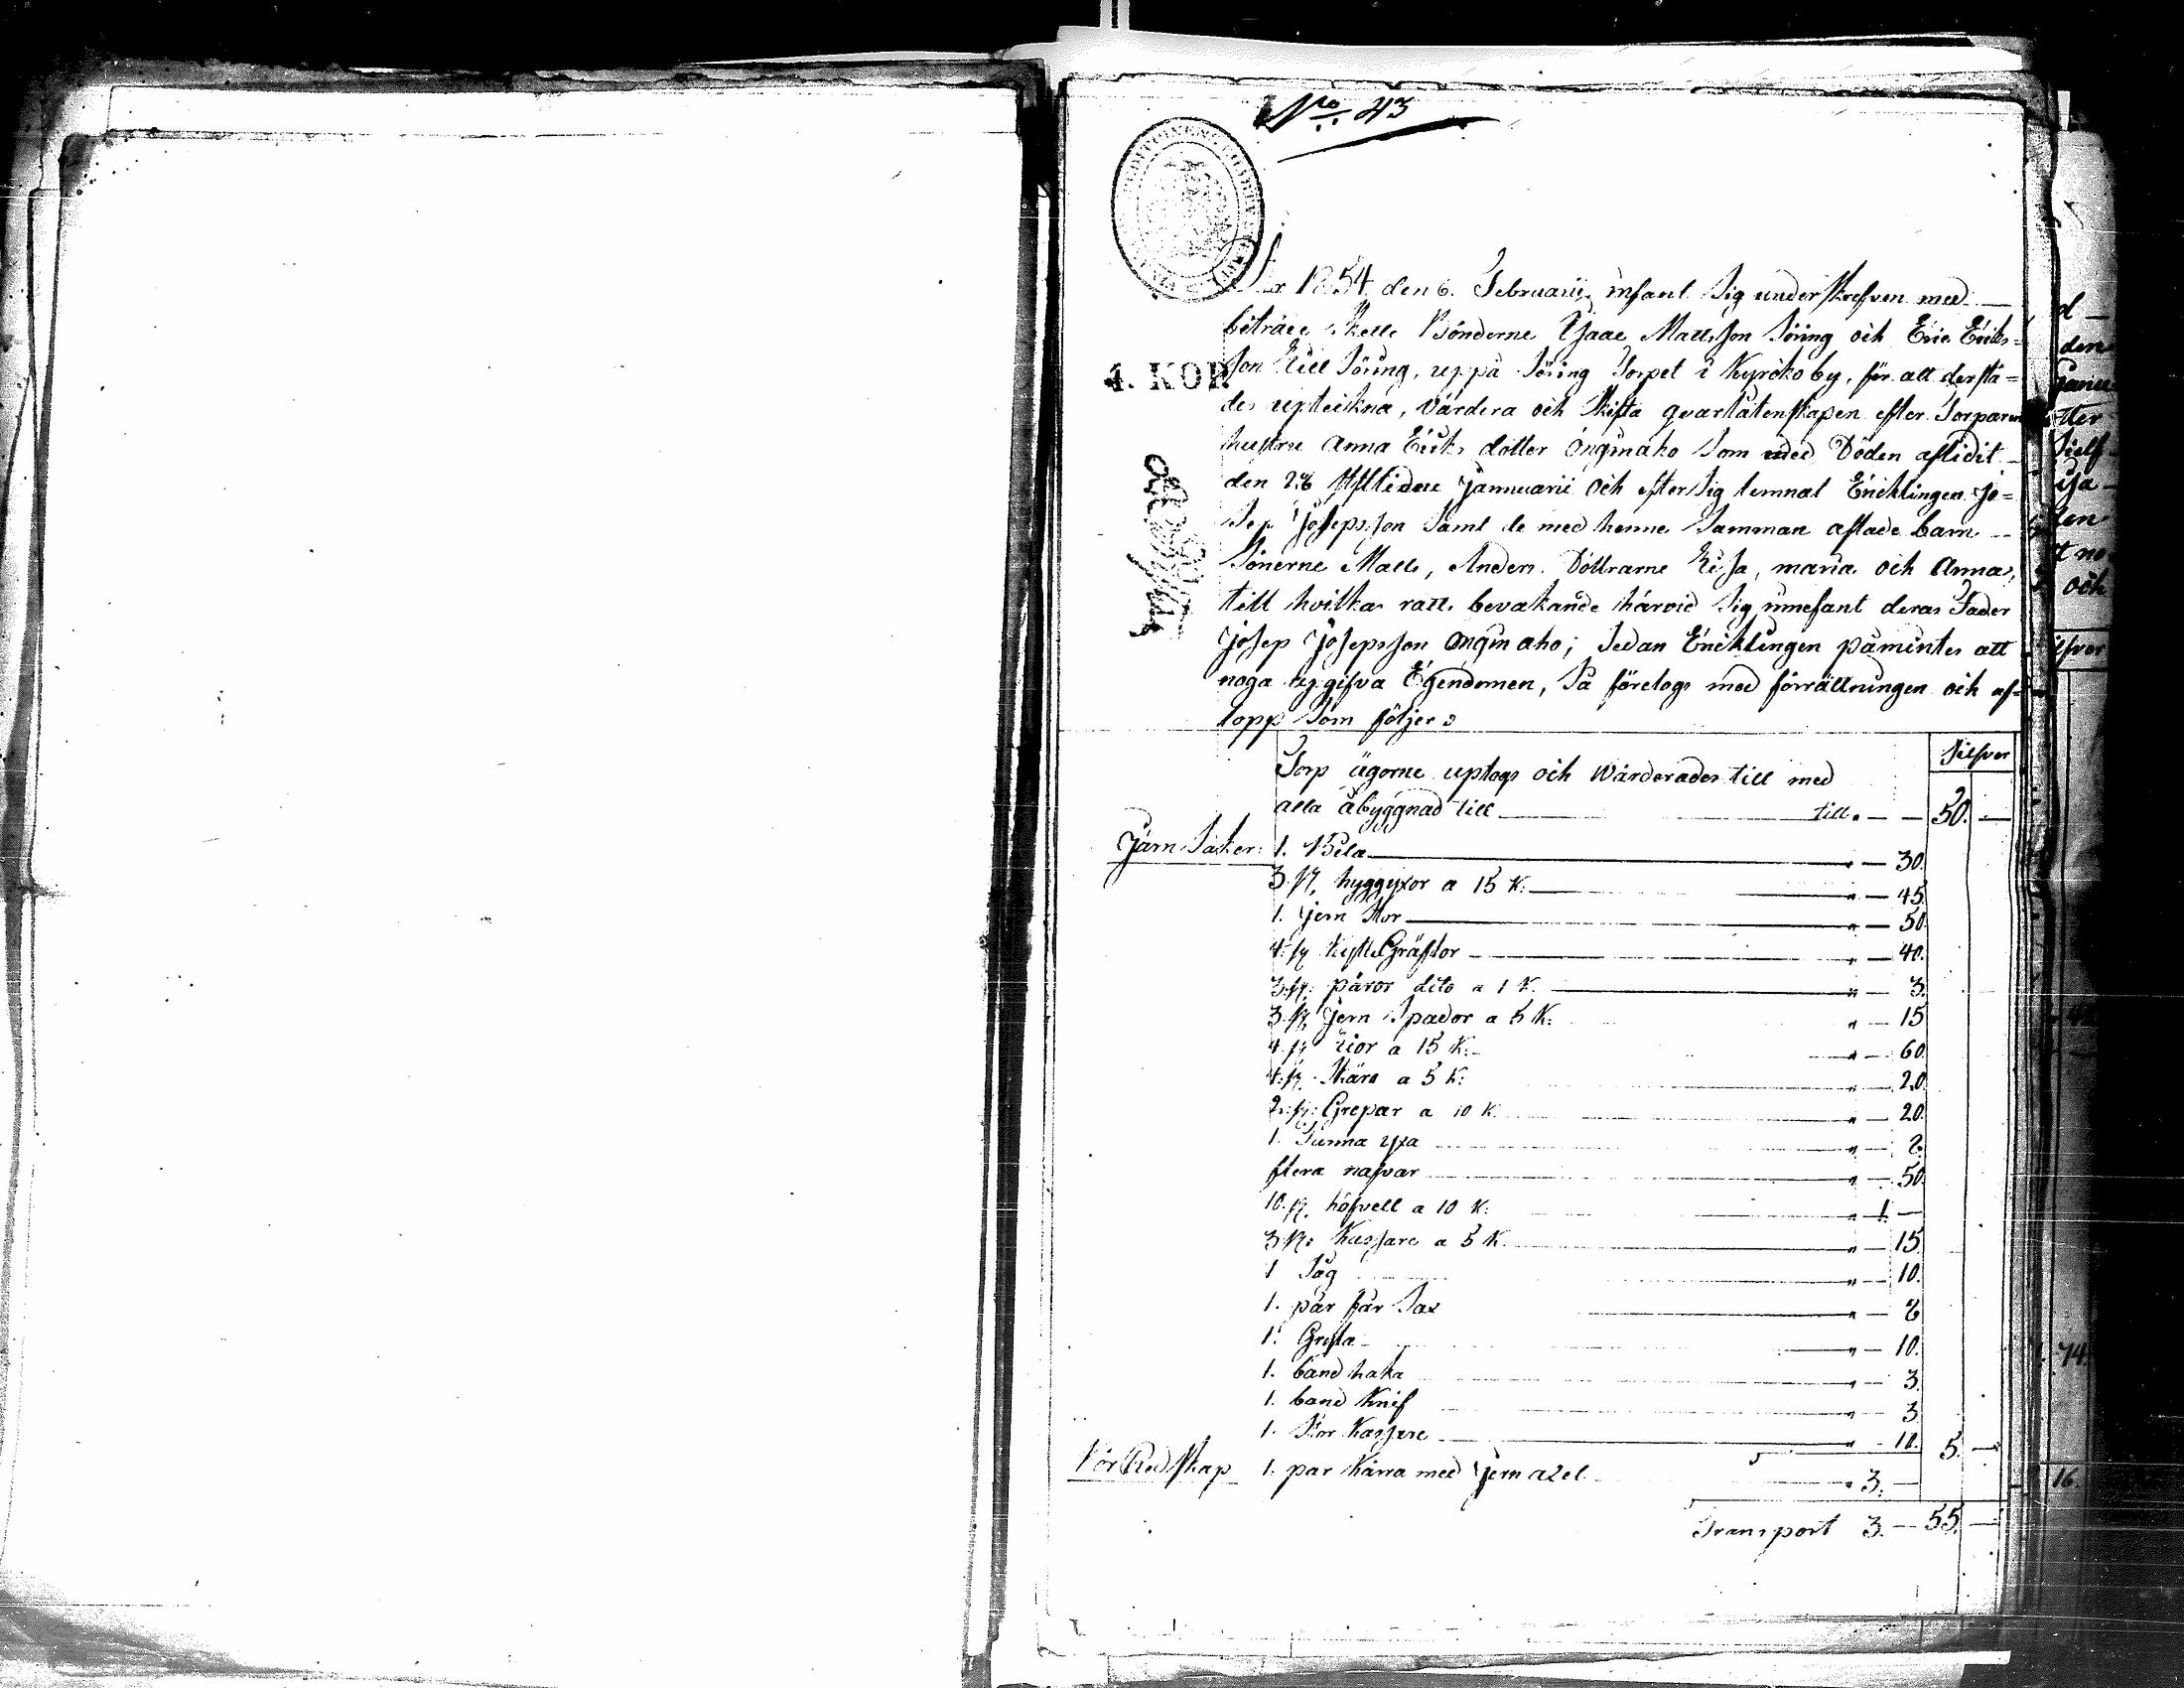 No 43
År 1854 den 6. Februarii, infant Sig underskrefven med
biträde Skelle Bönderne Isaac Mattsson Söring och Eric Erics=
son Lill Söring, uppå Söring Torpet i Kyroko by, för att derstä=
des upteikna, värdera och Skifta qvarlåtenskapen efter Torparen
hustru Anna Ericks dotter Ongmaho Som med Döden aflidit
den 26 sistlidne Jannuarii och efter Sig lemnat Enicklingen Jo=
sep Josepsson Samt de med henne Samman aflade barn
Sönerne Matts, Anders, Döttrarne Lisa, maria och Anna,
till hvilkas rätts bevakande härvid Sig innefant deras Fader
Josep Josepsson Ongmaho; Sedan Enicklingen påmintes att
noga uppgifva Egendomen, Så företogs med förrättningen och af=
lopp Som följer:
4. KOP.
Silfver
Torp ägorne uptogs och Wärderades till med
alla åbyggnad till till. 50. —
Järn Saker: 1. Bila " — 30.
3. st. hyggyxor a 15 K. " — 45.
1. jern Stor " — 50.
4. st Gräftor " — 40.
3. st. päror dito a 1 K. " — 3.
3. st. Jern Spador a 5 K. " — 15
4. st lior a 15 K. " — 60.
4. st. Skära a 5 K. " — 20.
2. st. Grepar a 10 K. " — 20.
1. Tunna yxa " — 8.
flera nafvar " — 50.
10. st. höfvell a 10 K. " 1. —
3. st. Kassare a 5 K. " — 15.
1 Såg " — 10.
1. par får Sax " — 8
1. Grysta " — 10.
1. band haka " — 3.
1. band Knif " — 3.
1. Stor Kassare " 10. 5. —
5
KörRedskap 1. par Kärra med Jern axel " 3. —
Transport 3. — 55. —